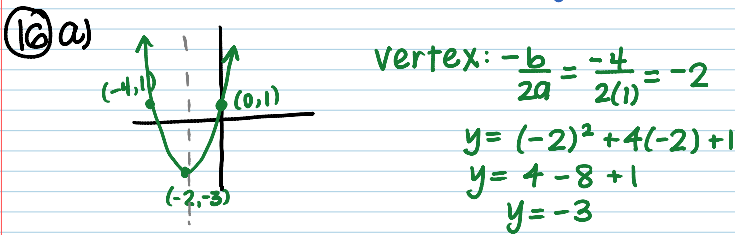 16 a)
(-4,1)
(0,1)
(-2,-3)
vertex: -b/2a = -4/2(1) = -2
y = (-2)² + 4(-2) + 1
y = 4 - 8 + 1
y = -3